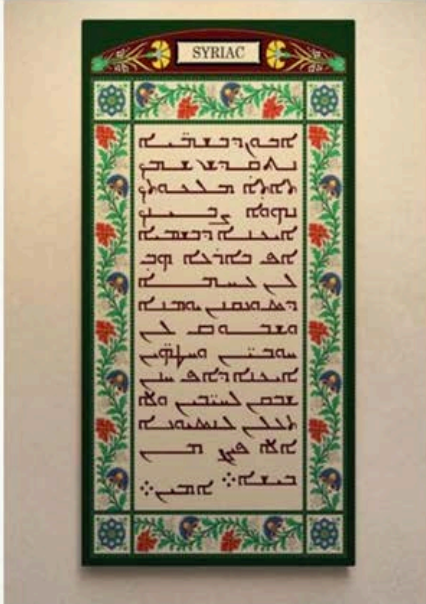 SYRIAC
ܐܒܘܢ ܕܒܫܡܝܐ
ܢܬܩܕܫ ܫܡܟ
ܬܐܬܐ ܡܠܟܘܬܟ
ܢܗܘܐ ܨܒܝܢܟ
ܐܝܟܢܐ ܕܒܫܡܝܐ
ܐܦ ܒܐܪܥܐ ܗܒ
ܠܢ ܠܚܡܐ
ܕܣܘܢܩܢܢ ܝܘܡܢܐ
ܘܫܒܘܩ ܠܢ
ܚܘܒܝ̈ܢ ܘܚܛܗ̈ܝܢ
ܐܝܟܢܐ ܕܐܦ ܚܢܢ
ܫܒܩܢ ܠܚܝ̈ܒܝܢ ܘܠܐ
ܬܥܠܢ ܠܢܣܝܘܢܐ
ܐܠܐ ܦܨܢ ܡܢ
ܒܝܫܐ܀ ܐܡܝܢ܀